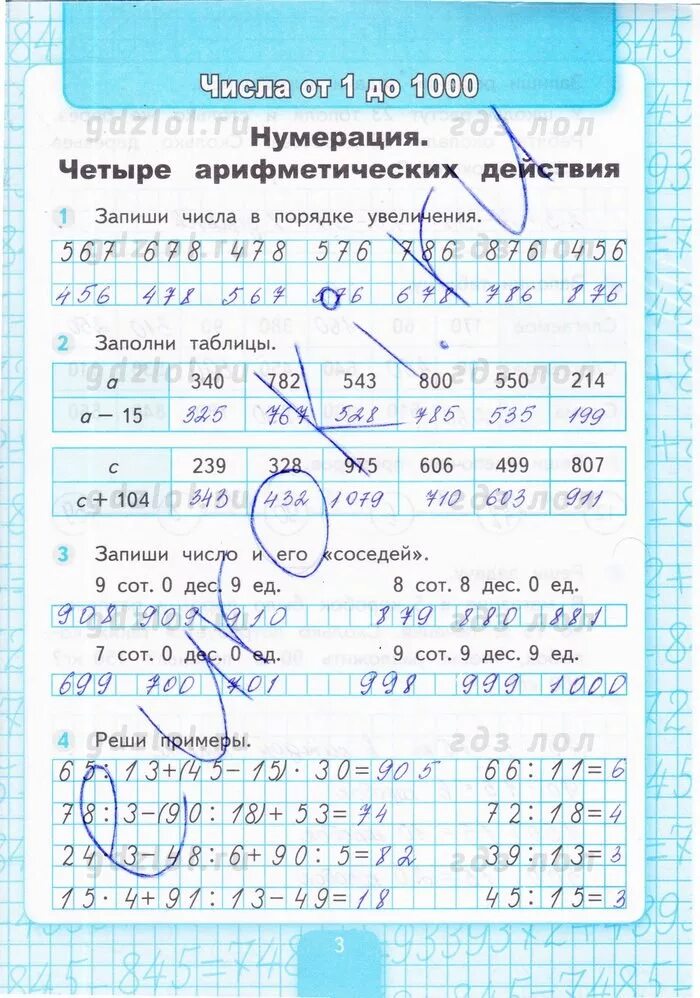 Числа от 1 до 1000
gdzlol.ru гдз лол
Нумерация.
Четыре арифметических действия
1 Запиши числа в порядке увеличения.
567 678 478 576 786 876 456
456 478 567 576 678 786 876
2 Заполни таблицы.
gdzlol.ru
a 340 782 543 800 550 214
a – 15 325 767 528 785 535 199
c 239 328 975 606 499 807
c + 104 343 432 1079 710 603 911
3 Запиши число и его «соседей».
9 сот. 0 дес. 9 ед. 8 сот. 8 дес. 0 ед.
908 909 910 879 880 881
gdzlol.ru гдз лол
7 сот. 0 дес. 0 ед. 9 сот. 9 дес. 9 ед.
699 700 701 998 999 1000
4 Реши примеры.
gdzlol.ru гдз лол
65:13+(45–15)·30=905 66:11=6
78:3–(90:18)+53=74 72:18=4
24·3–48:6+90:5=82 39:13=3
15·4+91:13–49=18 45:15=3
3
e-uroki.ru